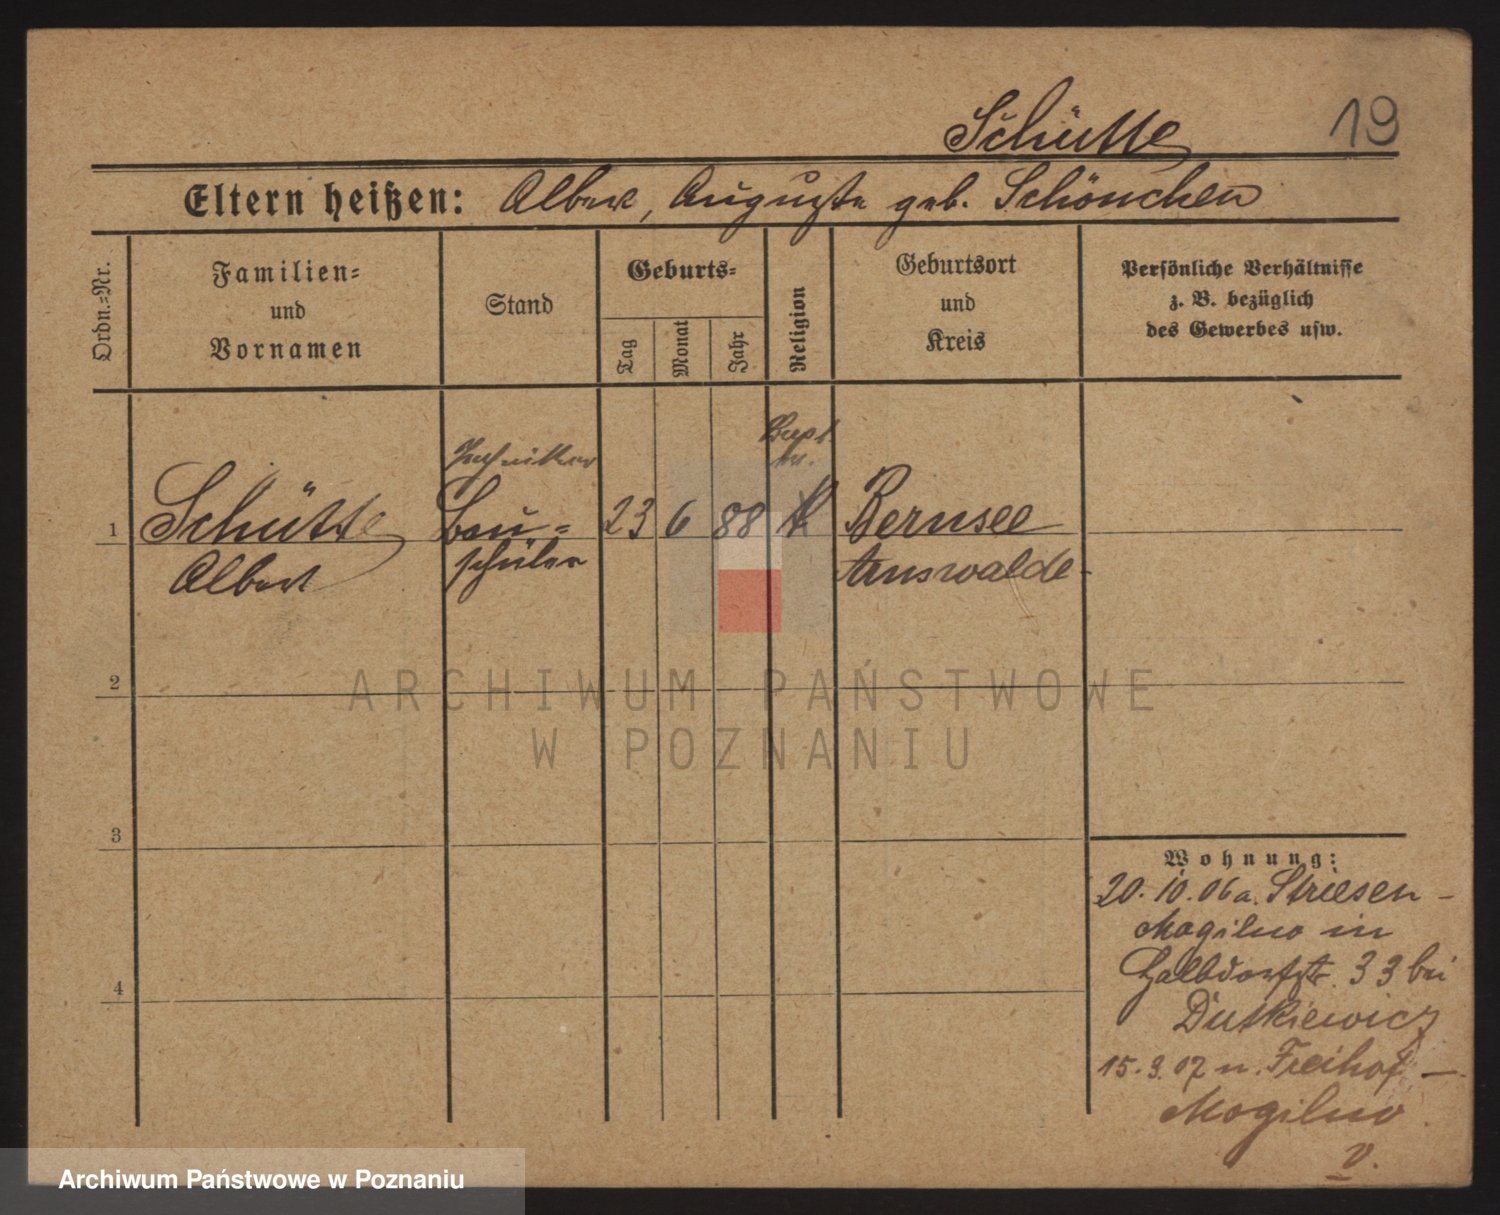 Schütte
19
Eltern heißen: Albert, Auguste geb. Schönchen
Ordn.-Nr.
Familien-
und
Vornamen
Stand
Geburts-
Tag
Monat
Jahr
Religion
Geburtsort
und
Kreis
Persönliche Verhältnisse
z. B. bezüglich
des Gewerbes usw.
1
Schütte
Albert
Techniker
Bau-
schüler
23
6
88
Bernsee
Arnswalde
2
3
4
Wohnung:
20.10.06 a. Striesen-
Mogilno in
Halbdorfstr. 33 bei
Dutkiewicz
15.3.07 n. Freihof-
Mogilno
v.
ARCHIWUM PAŃSTWOWE
W POZNANIU
Archiwum Państwowe w Poznaniu